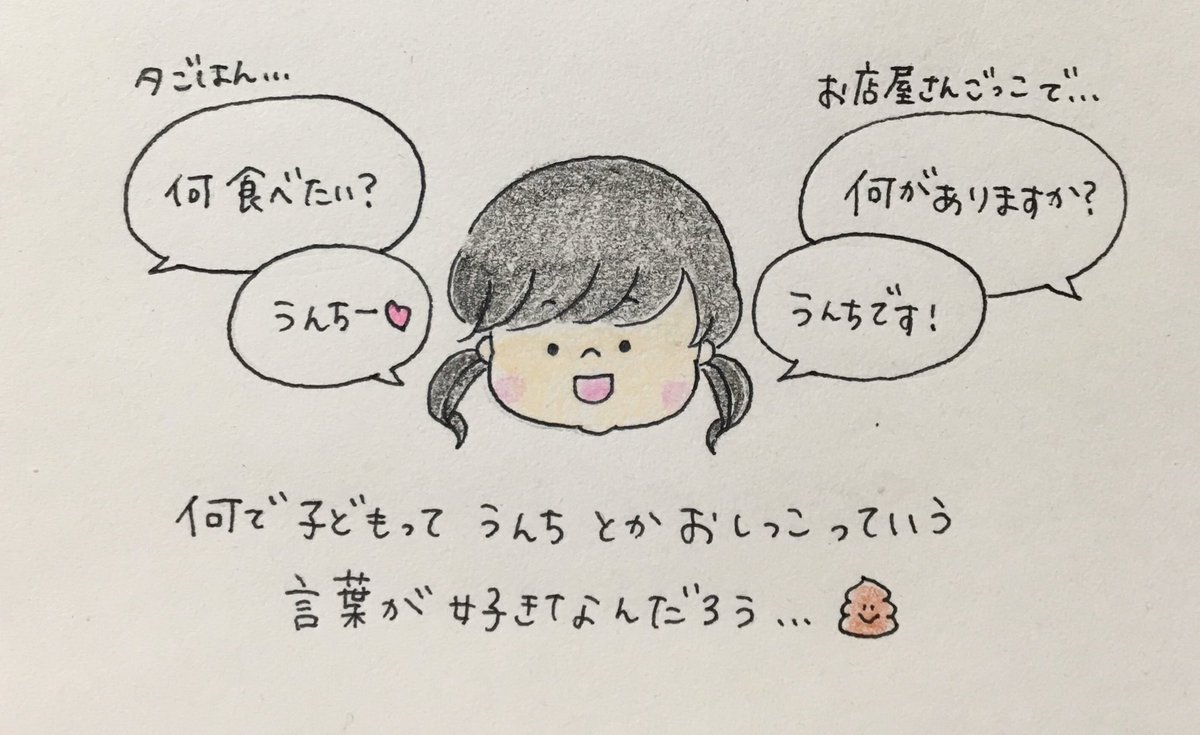 夕ごはん...
何食べたい?
うんちー♥
お店屋さんごっこで...
何がありますか?
うんちです!
何で子どもって うんち とか おしっこっていう
言葉が好きなんだろう...